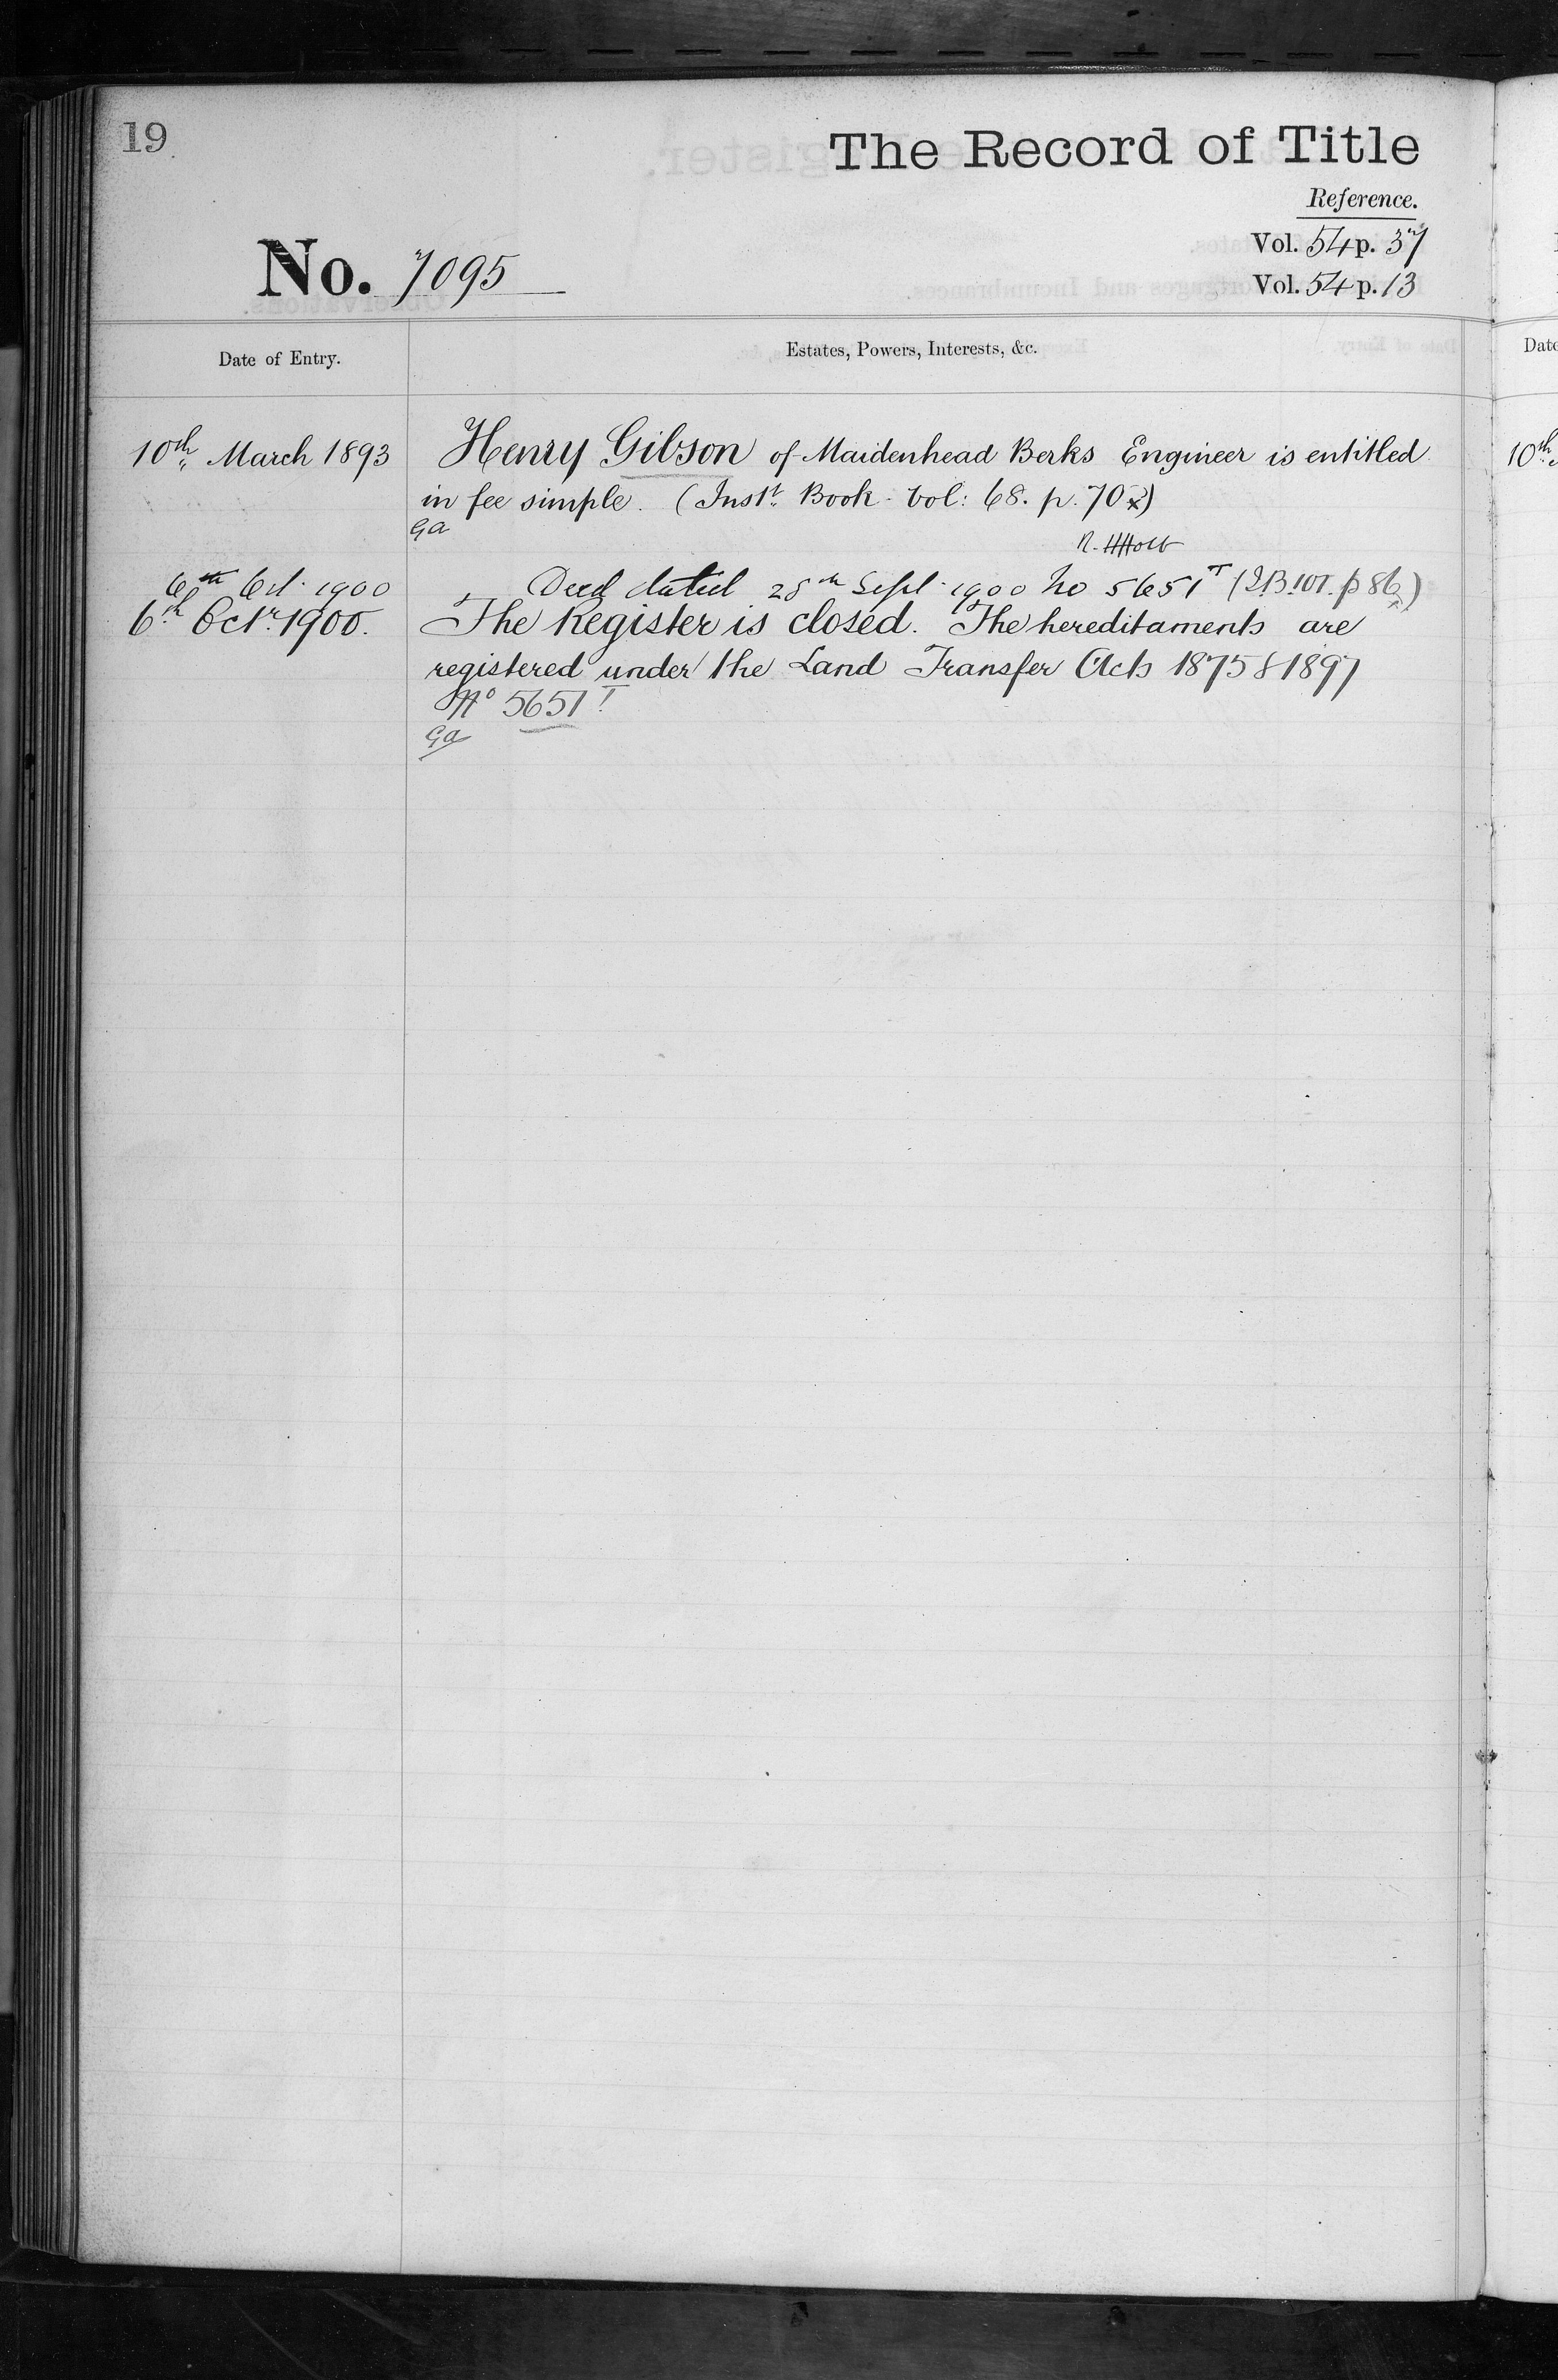 19
The Record of Title
Reference.
Vol. 54 p. 37
No. 7095
Vol. 54 p. 13
Date of Entry.
Estates, Powers, Interests, &c.
Date
10th March 1893
Henry Gibson of Maidenhead Berks Engineer is entitled
10th
in fee simple. (Inst. Book Vol: 68. p. 70 x)
GA
6th Oct. 1900
Deed dated 28th Sept. 1900 No 5651 T (I.B. 101. p 86 x)
6th Octr. 1900.
The Register is closed. The hereditaments are
registered under the Land Transfer Acts 1875 & 1897
No 5651 T
GA